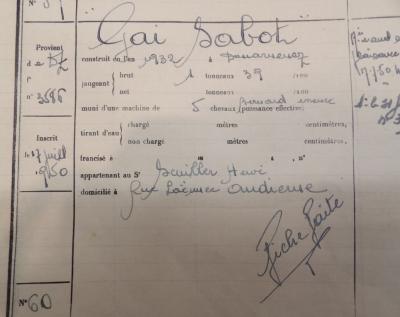 "Gai Sabot"
Provient
de DZ
fº
nº 3586
construit en l'an 1932 à Douarnenez
jaugeant
brut 1 tonneaux 39 /100
net tonneaux /100
muni d'une machine de 5 chevaux (puissance effective)
tirant d'eau
chargé mètres centimètres,
non chargé mètres centimètres,
Inscrit
le 17 juill
1950
francisé à , nº
appartenant au Sr Hervé
domicilié à Rue Laënnec Audierne
Fiche faite
Nº 60